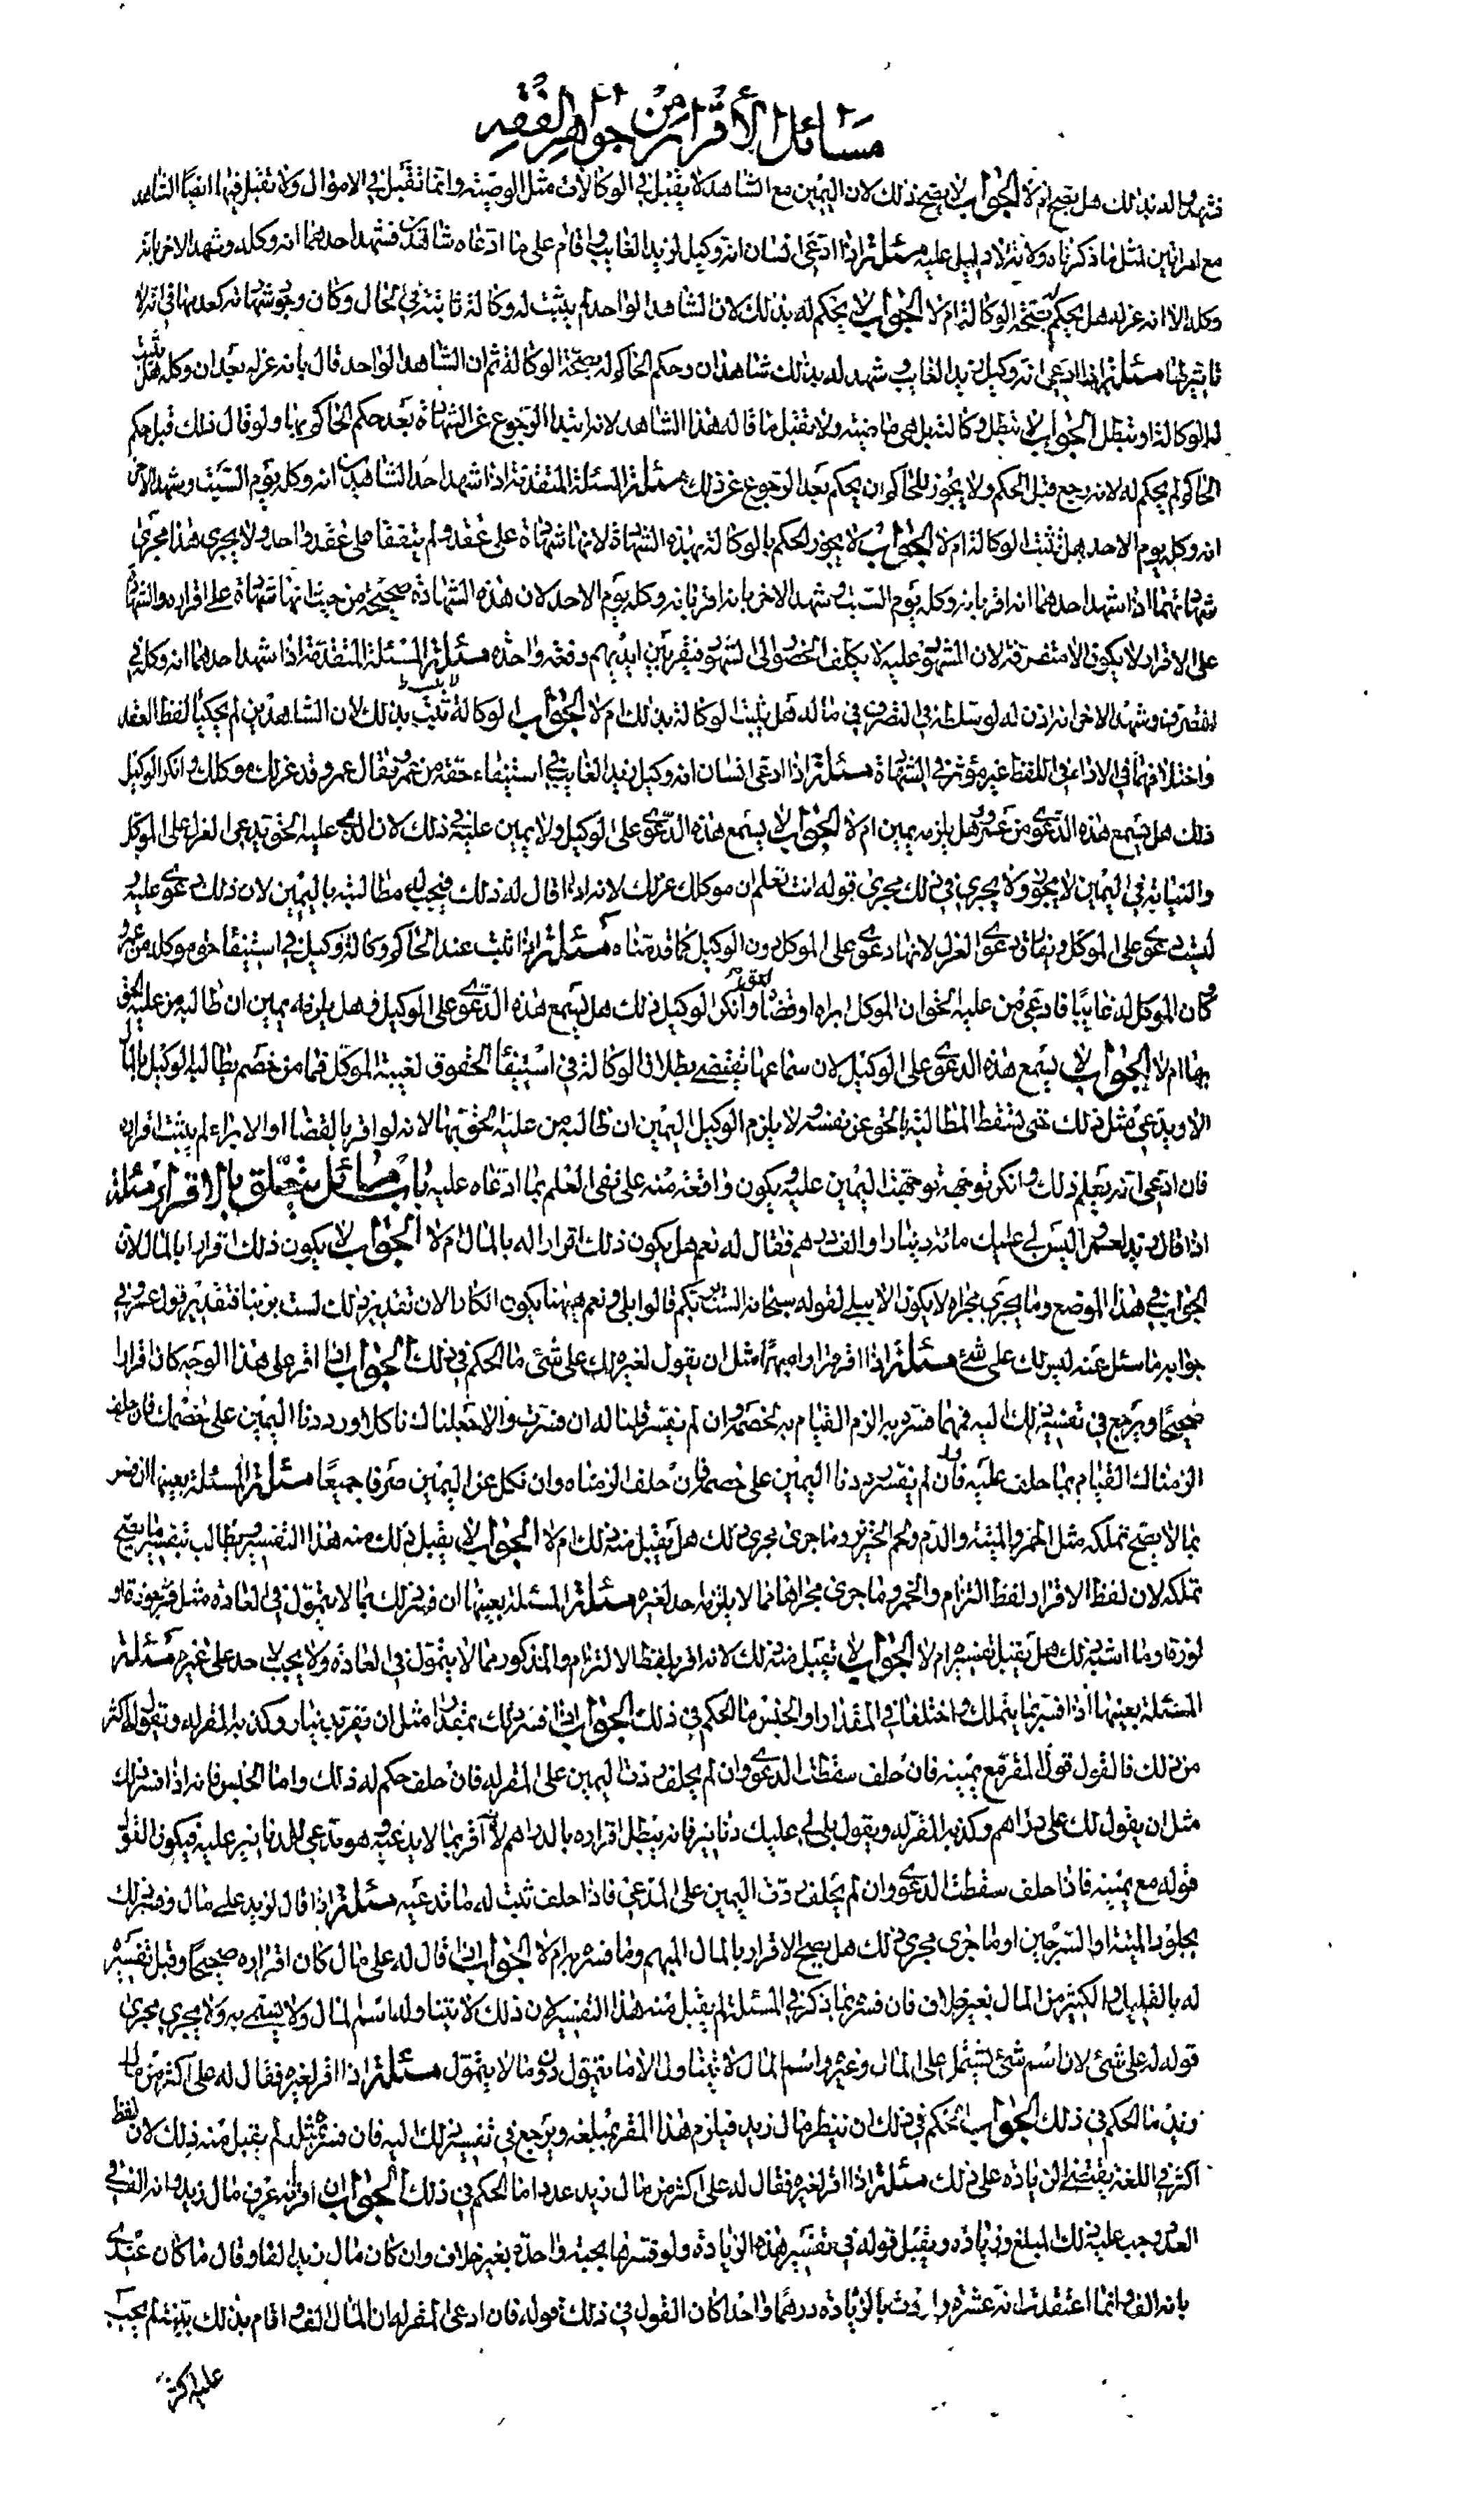 مسائل الأقرار من جواهر الفقه
فشهد له بذلك هل يصح ام لا الجواب لا يصح ذلك لان اليمين مع الشاهد لا يقبل في الوكالات مثل الوصية وانما تقبل في الاموال ولا تقبل فيها ايضا الشاهد
مع امراتين لمثل ما ذكرناه ولانه لا دليل عليه مسئلة اذا ادعى انسان انه وكيل لزيد الغايب واقام على ما ادعاه شاهدين فشهد احدهما انه وكله وشهد الاخر بانه
وكله الا انه عزله هل يحكم بصحة الوكالة ام لا الجواب لا يحكم له بذلك لان الشاهد الواحد لم يثبت له وكالة ثابتة في الحال وكان وجود شهادته كعدمها في انه لا
تاثير لها مسئلة اذا ادعى انه وكيل لزيد الغايب وشهد له بذلك شاهدان وحكم الحاكم له بصحة الوكالة ثم ان الشاهد الواحد قال بانه عزله بعد ان وكله هل تثبت
له الوكالة او تبطل الجواب لا تبطل وكالته بل هي ماضية ولا يقبل ما قاله هذا الشاهد لانه ابتدا الرجوع عن الشهادة بعد حكم الحاكم بها ولو قال ذلك قبل حكم
الحاكم لم يحكم له لانه رجع قبل الحكم ولا يجوز للحاكم ان يحكم بعد الرجوع عن ذلك مسئلة المسئلة المتقدمة اذا شهد احد الشاهدين انه وكله يوم السبت وشهد الاخر
انه وكله يوم الاحد هل تثبت الوكالة ام لا الجواب لا يجوز الحكم بالوكالة بهذه الشهادة لانها شهادة على عقد ولم يتفقا على عقد واحد ولا يجرى هذا مجرى
شهادتهما اذا شهد احدهما انه اقر بانه وكله يوم السبت وشهد الاخر بانه اقر بانه وكله يوم الاحد لان هذه الشهادة صحيحة من حيث انها شهادة على اقراره والشهادة
على الاقرار لا يكون الا متفرقة لان المشهود عليه لا يكلف الحضور الى الشهود فيقر بين ايديهم دفعة واحدة مسئلة المسئلة المتقدمة اذا شهد احدهما انه وكله في
التصرف وشهد الاخر انه اذن له او سلطه في التصرف في ماله هل يثبت الوكالة بذلك ام لا الجواب الوكالة تثبت بذلك لان الشاهدين لم يحكيا لفظ العقد
واختلافهما في الاداء في اللفظ غير مؤثر في الشهادة مسئلة اذا ادعى انسان انه وكيل لزيد الغايب في استيفاء حقه من عمرو فقال عمرو قد عزلك موكلك وانكر الوكيل
ذلك هل يسمع هذه الدعوى من عمرو وهل يلزمه يمين ام لا الجواب لا يسمع هذه الدعوى على الوكيل ولا يمين عليه في ذلك لان الذى عليه الحق يدعى العزل على الموكل
والنيابة في اليمين لا يجوز ولا يجرى في ذلك مجرى قوله انت تعلم ان موكلك عزلك لانه اذا قال له ذلك فيجب له مطالبته باليمين لان ذلك دعوى عليه
ليست دعوى على الموكل ويفارق دعوى العزل لانها دعوى على الموكل دون الوكيل كما قدمناه مسئلة اذا ثبت عند الحاكم وكالة وكيل في استيفا حق موكله من عمرو
وكان الموكل له غايبا فادعى من عليه الحق ان الموكل ابراه او قضاه وانكر الوكيل ذلك هل يسمع هذه الدعوى على الوكيل وهل يلزمه يمين ان طالبه من عليه الحق
بها ام لا الجواب لا يسمع هذه الدعوى على الوكيل لان سماعها يقتضى بطلان الوكالة في استيفا الحقوق لغيبة الموكل فما من خصم يطالبه الوكيل بالمال
الا ويدعى مثل ذلك حتى تسقط المطالبة بالحق عن نفسه ولا يلزم الوكيل اليمين ان طالبه من عليه الحق بها لانه لو اقر بالقضا او الابراء لم يثبت اقراره
فان ادعى انه يعلم ذلك وانكر توجهه توجهت اليمين عليه ويكون واقعة منه على نفى العلم بما ادعاه عليه باب مسائل يتعلق بالاقرار مسئلة
اذا قال زيد لعمرو اليس لي عليك مائة دينار او الف درهم فقال له نعم هل يكون ذلك اقرارا له بالمال ام لا الجواب لا يكون ذلك اقرارا بالمال لان
الجواب في هذا الموضع وما يجرى مجراه لا يكون الا ببلى لقوله سبحانه الست بربكم قالوا بلى ونعم هيهنا يكون انكارا لان تقدير ذلك لست بربنا فتقدير قول عمرو في
جوابه ما سئل عنه ليس لك على شئ مسئلة اذا اقر اقرارا مبهما مثل ان يقول لغيره لك على شئ ما الحكم في ذلك الجواب اذا اقر على هذا الوجه كان اقرارا
صحيحا ويرجع في تفسير ذلك اليه فمهما فسره به الزم القيام به لخصمه وان لم يفسر قلنا له ان فسرت والا جعلناك ناكلا ورددنا اليمين على خصمك فان حلف
الزمناك القيام بما حلف عليه فان لم يفسر رددنا اليمين على خصمه فان حلف الزمناه وان نكل عن اليمين صرفا جميعا مسئلة المسئلة بعينها ان فسر
بما لا يصح تملكه مثل الخمر والميتة والدم ولحم الخنزير وما جرى مجرى ذلك هل يقبل منه ذلك ام لا الجواب لا يقبل ذلك منه هذا التفسير ويطالب بتفسير ما يصح
تملكه لان لفظ الاقرار لفظ التزام والخمر وما جرى مجراها مما لا يلزم احد لغيره مسئلة المسئلة بعينها ان فسر ذلك بما لا يتمول في العادة مثل قشر جوزة او
لوزة وما اشبه ذلك هل يقبل تفسيره ام لا الجواب لا تقبل منه ذلك لانه اقر بلفظ الالتزام والمذكور مما لا يتمول في العادة ولا يجب لاحد على غيره مسئلة
المسئلة بعينها اذا فسر بما يتملك واختلفا في المقدار او الجنس ما الحكم في ذلك الجواب اذا فسر ذلك بمقدار مثل ان يقر بدينار وكذبه المقر له ويقول له اكثر
من ذلك فالقول قول المقر مع يمينه فان حلف سقطت الدعوى وان لم يحلف ردت اليمين على المقر له فان حلف حكم له ذلك واما الجنس فانه اذا فسر ذلك
مثل ان يقول لك على دراهم وكذبه المقر له ويقول بل لي عليك دنانير فانه يبطل اقراره بالدراهم لانه اقر بما لا يدعيه وهو يدعى الدنانير عليه فيكون القول
قوله مع يمينه فاذا حلف سقطت الدعوى وان لم يحلف ردت اليمين على المدعى فاذا حلف ثبت له ما تدعيه مسئلة اذا قال لزيد على مال وفسر ذلك
بجلود الميتة او السرجين او ما جرى مجرى ذلك هل يصح الاقرار بالمال المبهم وما فسره به ام لا الجواب اذا قال له على مال كان اقراره صحيحا وقبل تفسيره
له بالقليل والكثير من المال بغير خلاف فان فسره بما ذكر في المسئلة لم يقبل منه هذا التفسير لان ذلك لا يتناوله اسم المال ولا يسمى به ولا يجرى مجرى
قوله له على شئ لان اسم شئ يشتمل على المال وغيره واسم المال لا يتناول الا ما يتمول دون ما لا يتمول مسئلة اذا اقر لغيره فقال له على اكثر من مال
زيد ما الحكم في ذلك الجواب الحكم في ذلك ان ننظر مال زيد فيلزم هذا المقر بمبلغه ويرجع في تفسير ذلك اليه فان فسر بمثله لم يقبل منه ذلك لان لفظ
اكثر في اللغة يقتضى الزيادة على ذلك مسئلة اذا اقر لغيره فقال له على اكثر من مال زيد عددا ما الحكم في ذلك الجواب ان اقر انه عرف مال زيد وانه الف في
العدد وجب عليه ذلك المبلغ وزيادة ويقبل قوله في تفسير هذه الزيادة ولو فسرها بحبة واحدة بغير خلاف وان كان مال زيد الفا وقال ما كان عندى
بانه الف وانما اعتقدت انه عشرة واردت بالزيادة درهما واحدا كان القول في ذلك قوله فان ادعى المقر له ان المال الف واقام بذلك بينة لم يجب
عليه اكثر